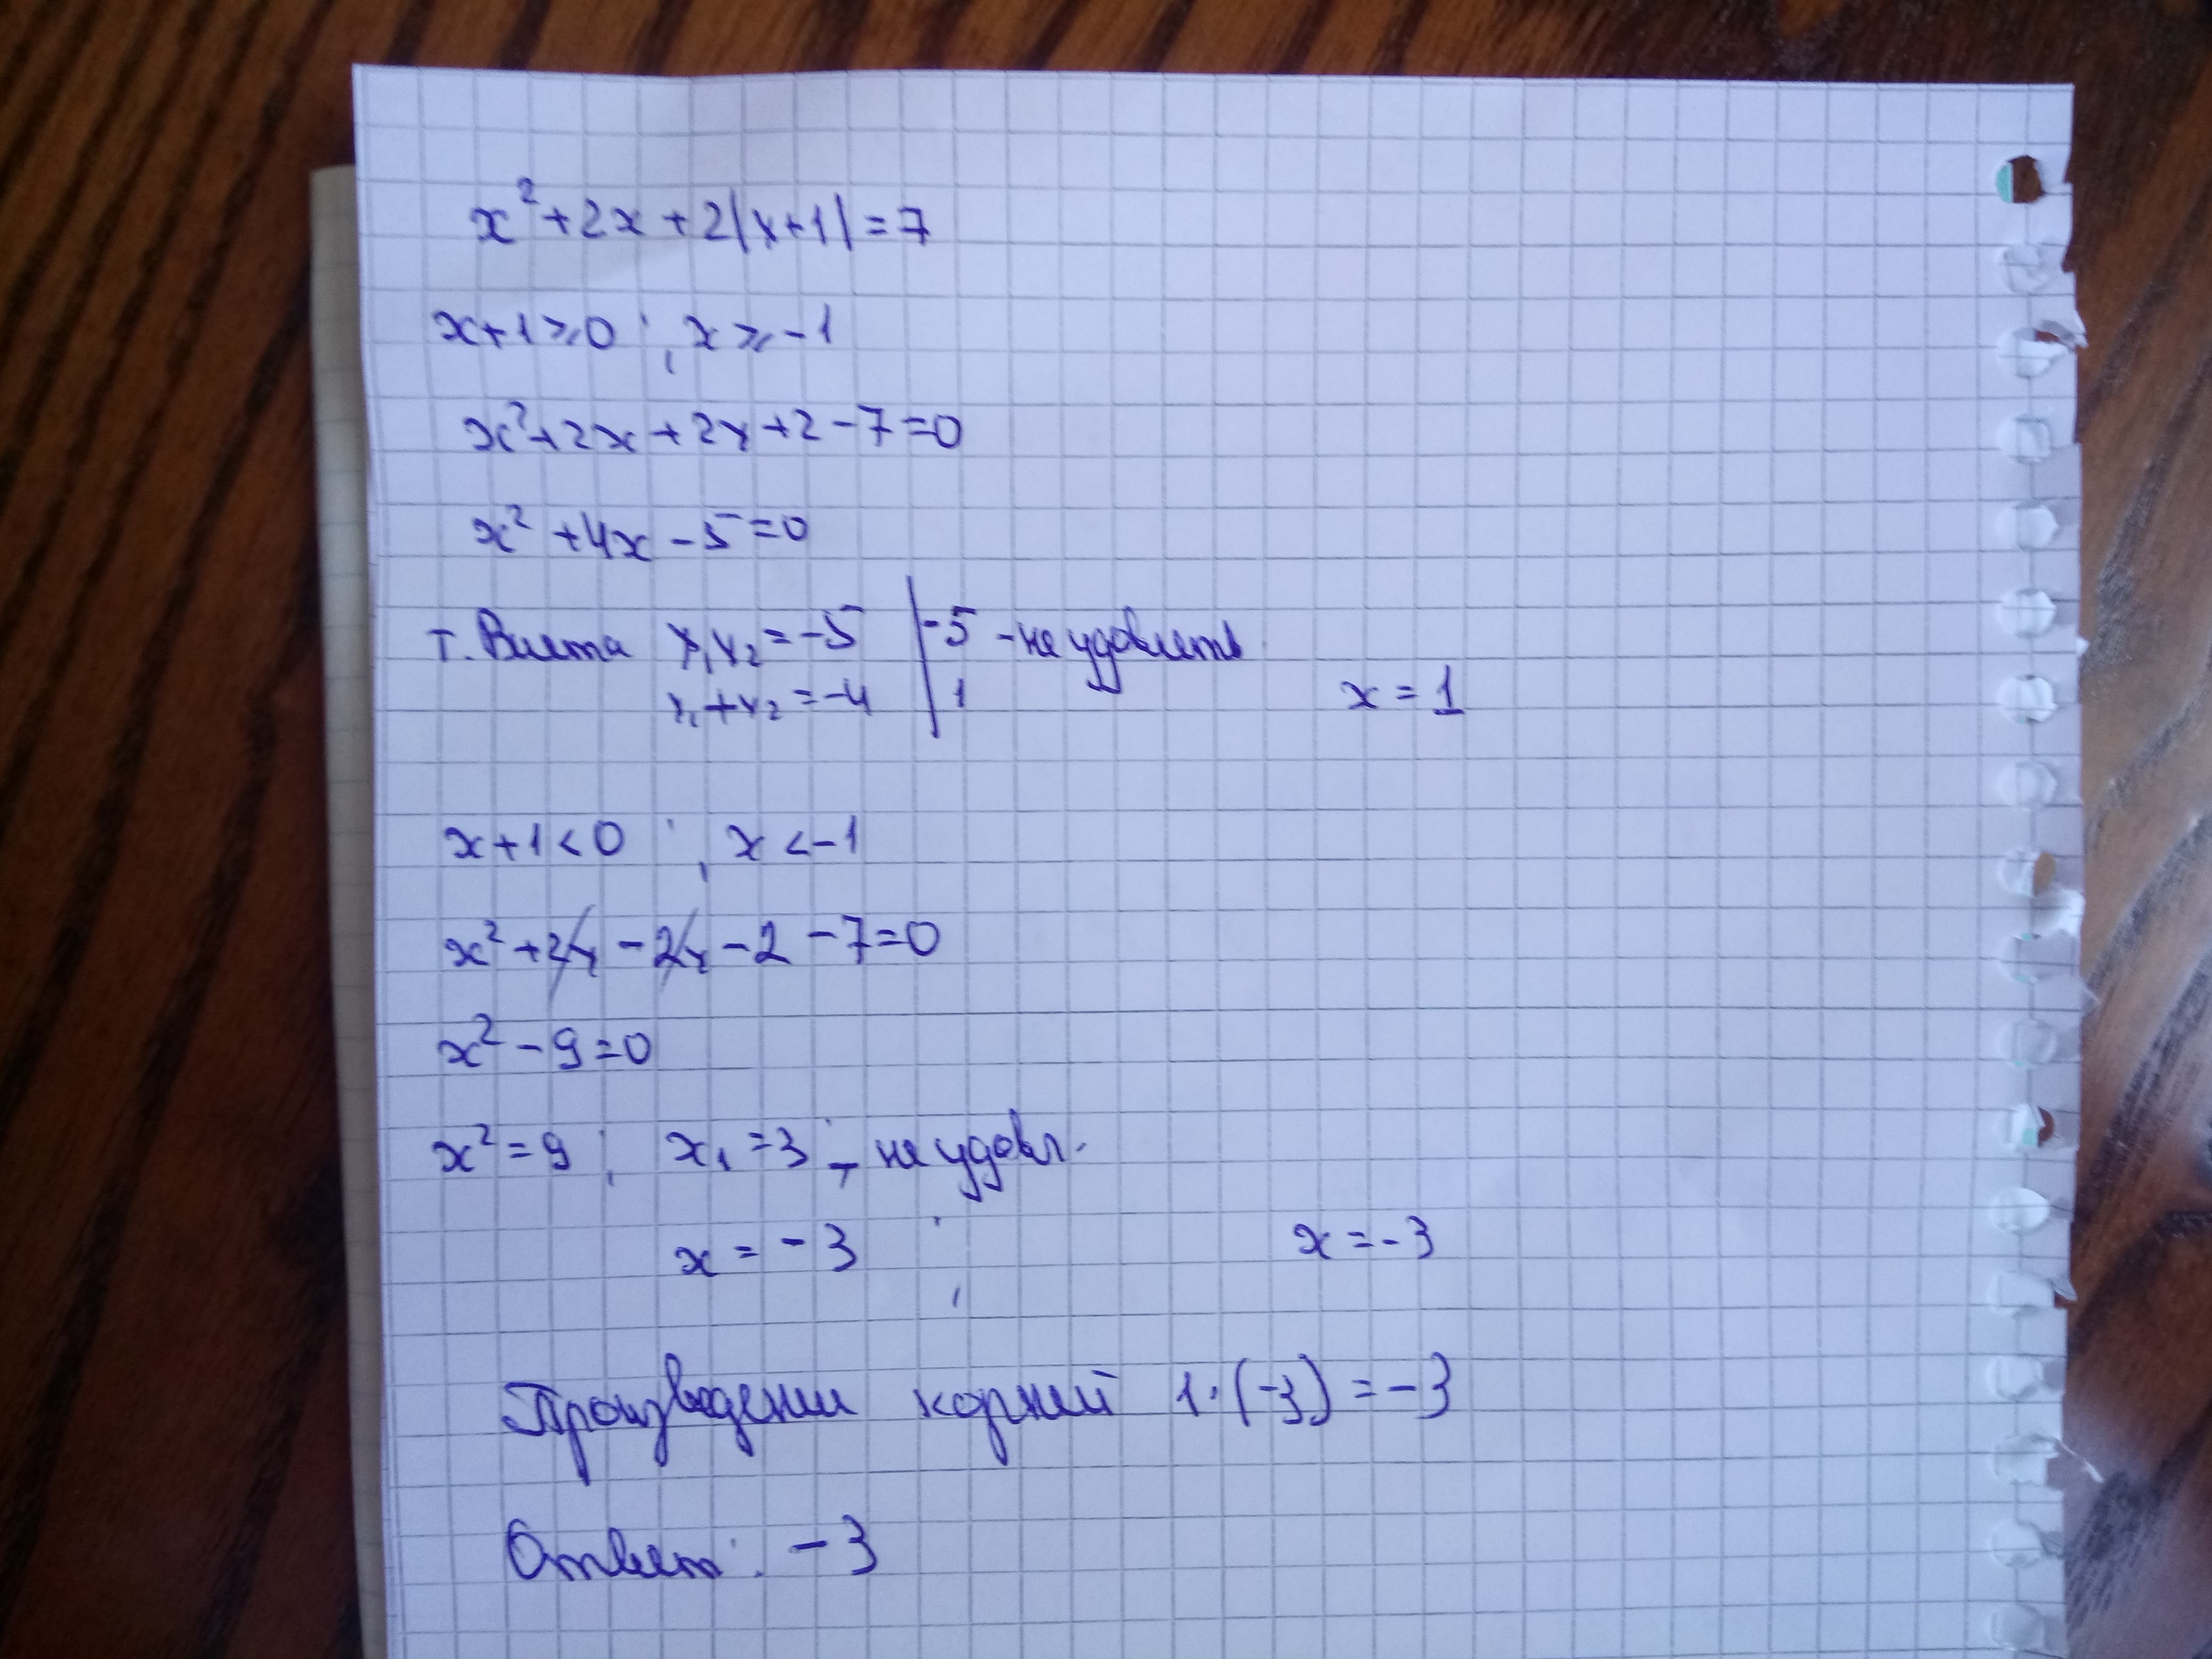 x² + 2x + 2|x+1| = 7
x+1 ⩾ 0 ; x ⩾ -1
x² + 2x + 2x + 2 - 7 = 0
x² + 4x - 5 = 0
т. Виета x₁x₂ = -5 | -5 - не удовлетв.
x₁+x₂ = -4 | 1 x = 1
x+1 < 0 ; x < -1
x² + 2x - 2x - 2 - 7 = 0
x² - 9 = 0
x² = 9 ; x₁ = 3 ; - не удовл.
x = -3 ; x = -3
Произведении корней 1·(-3) = -3
Ответ: -3